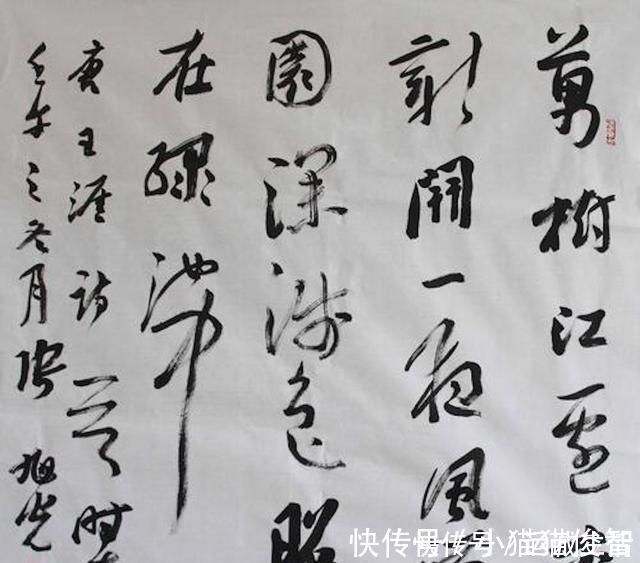 萬樹江邊
新開一夜風
園深淺色照
在綠波中
唐王涯詩一首時
壬午之冬月張旭光
快传号